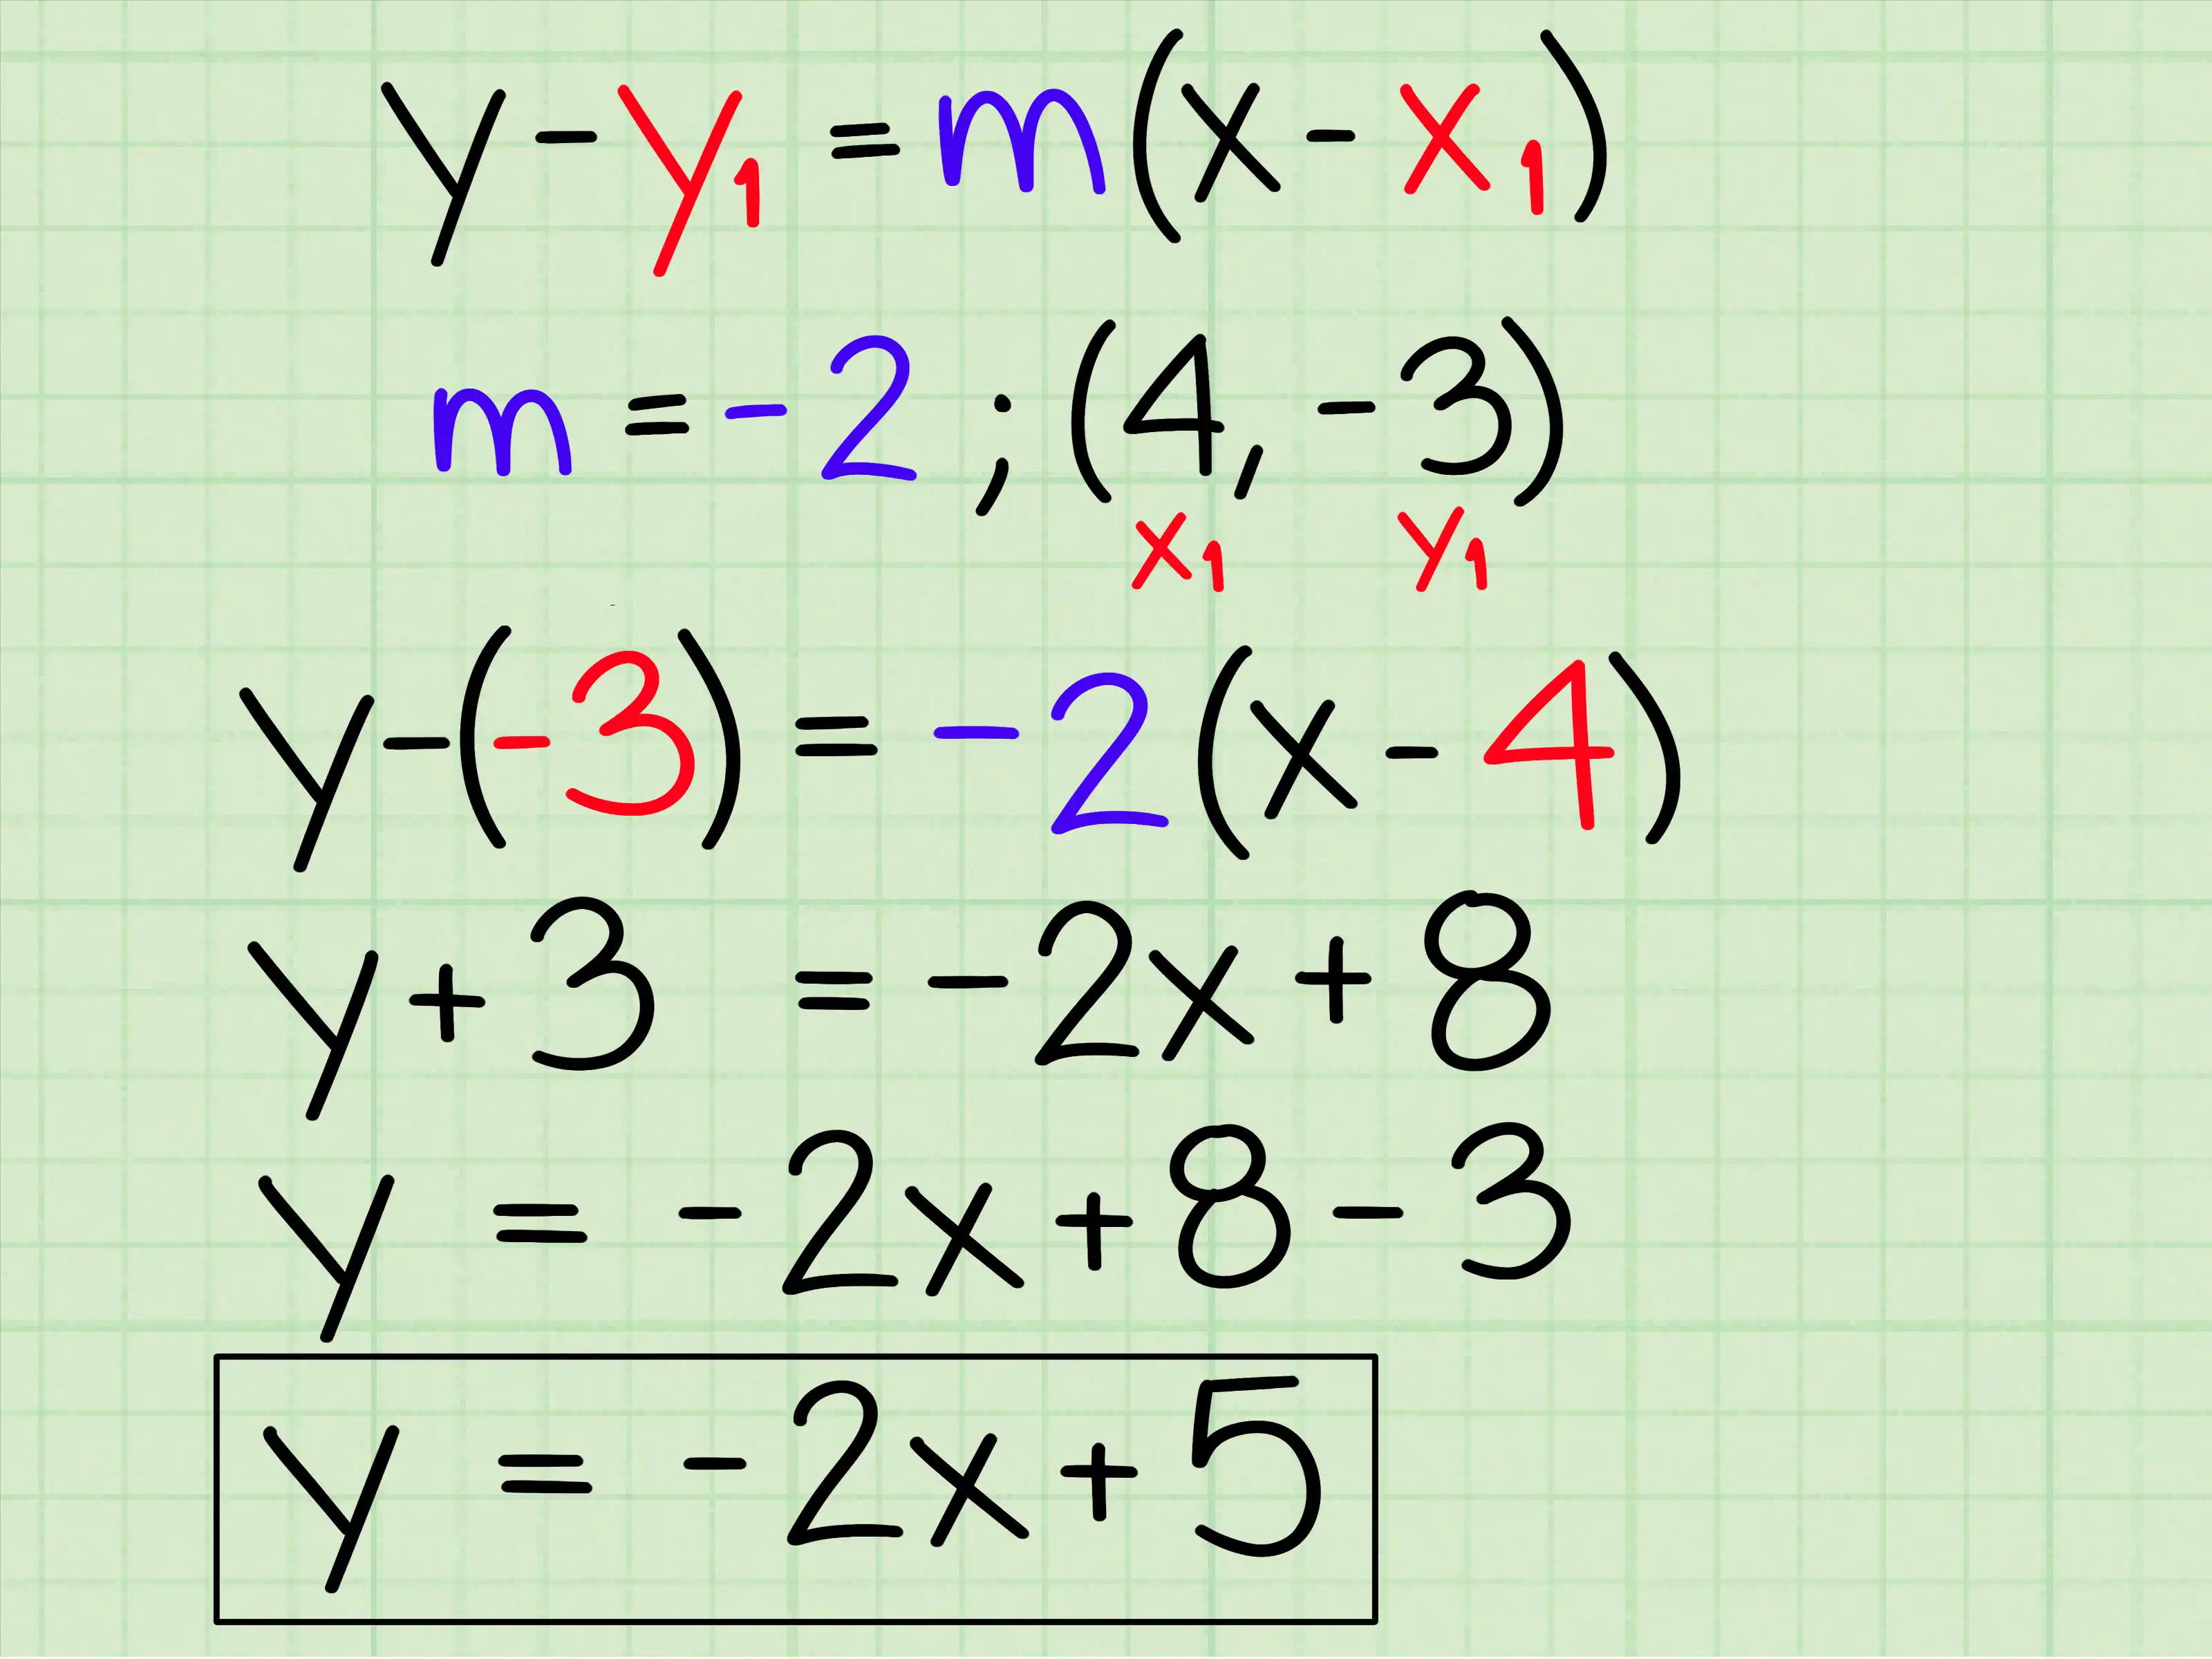 y - y₁ = m(x - x₁)
m = -2 ; (4, -3)
x₁ y₁
y - (-3) = -2(x - 4)
y + 3 = -2x + 8
y = -2x + 8 - 3
y = -2x + 5